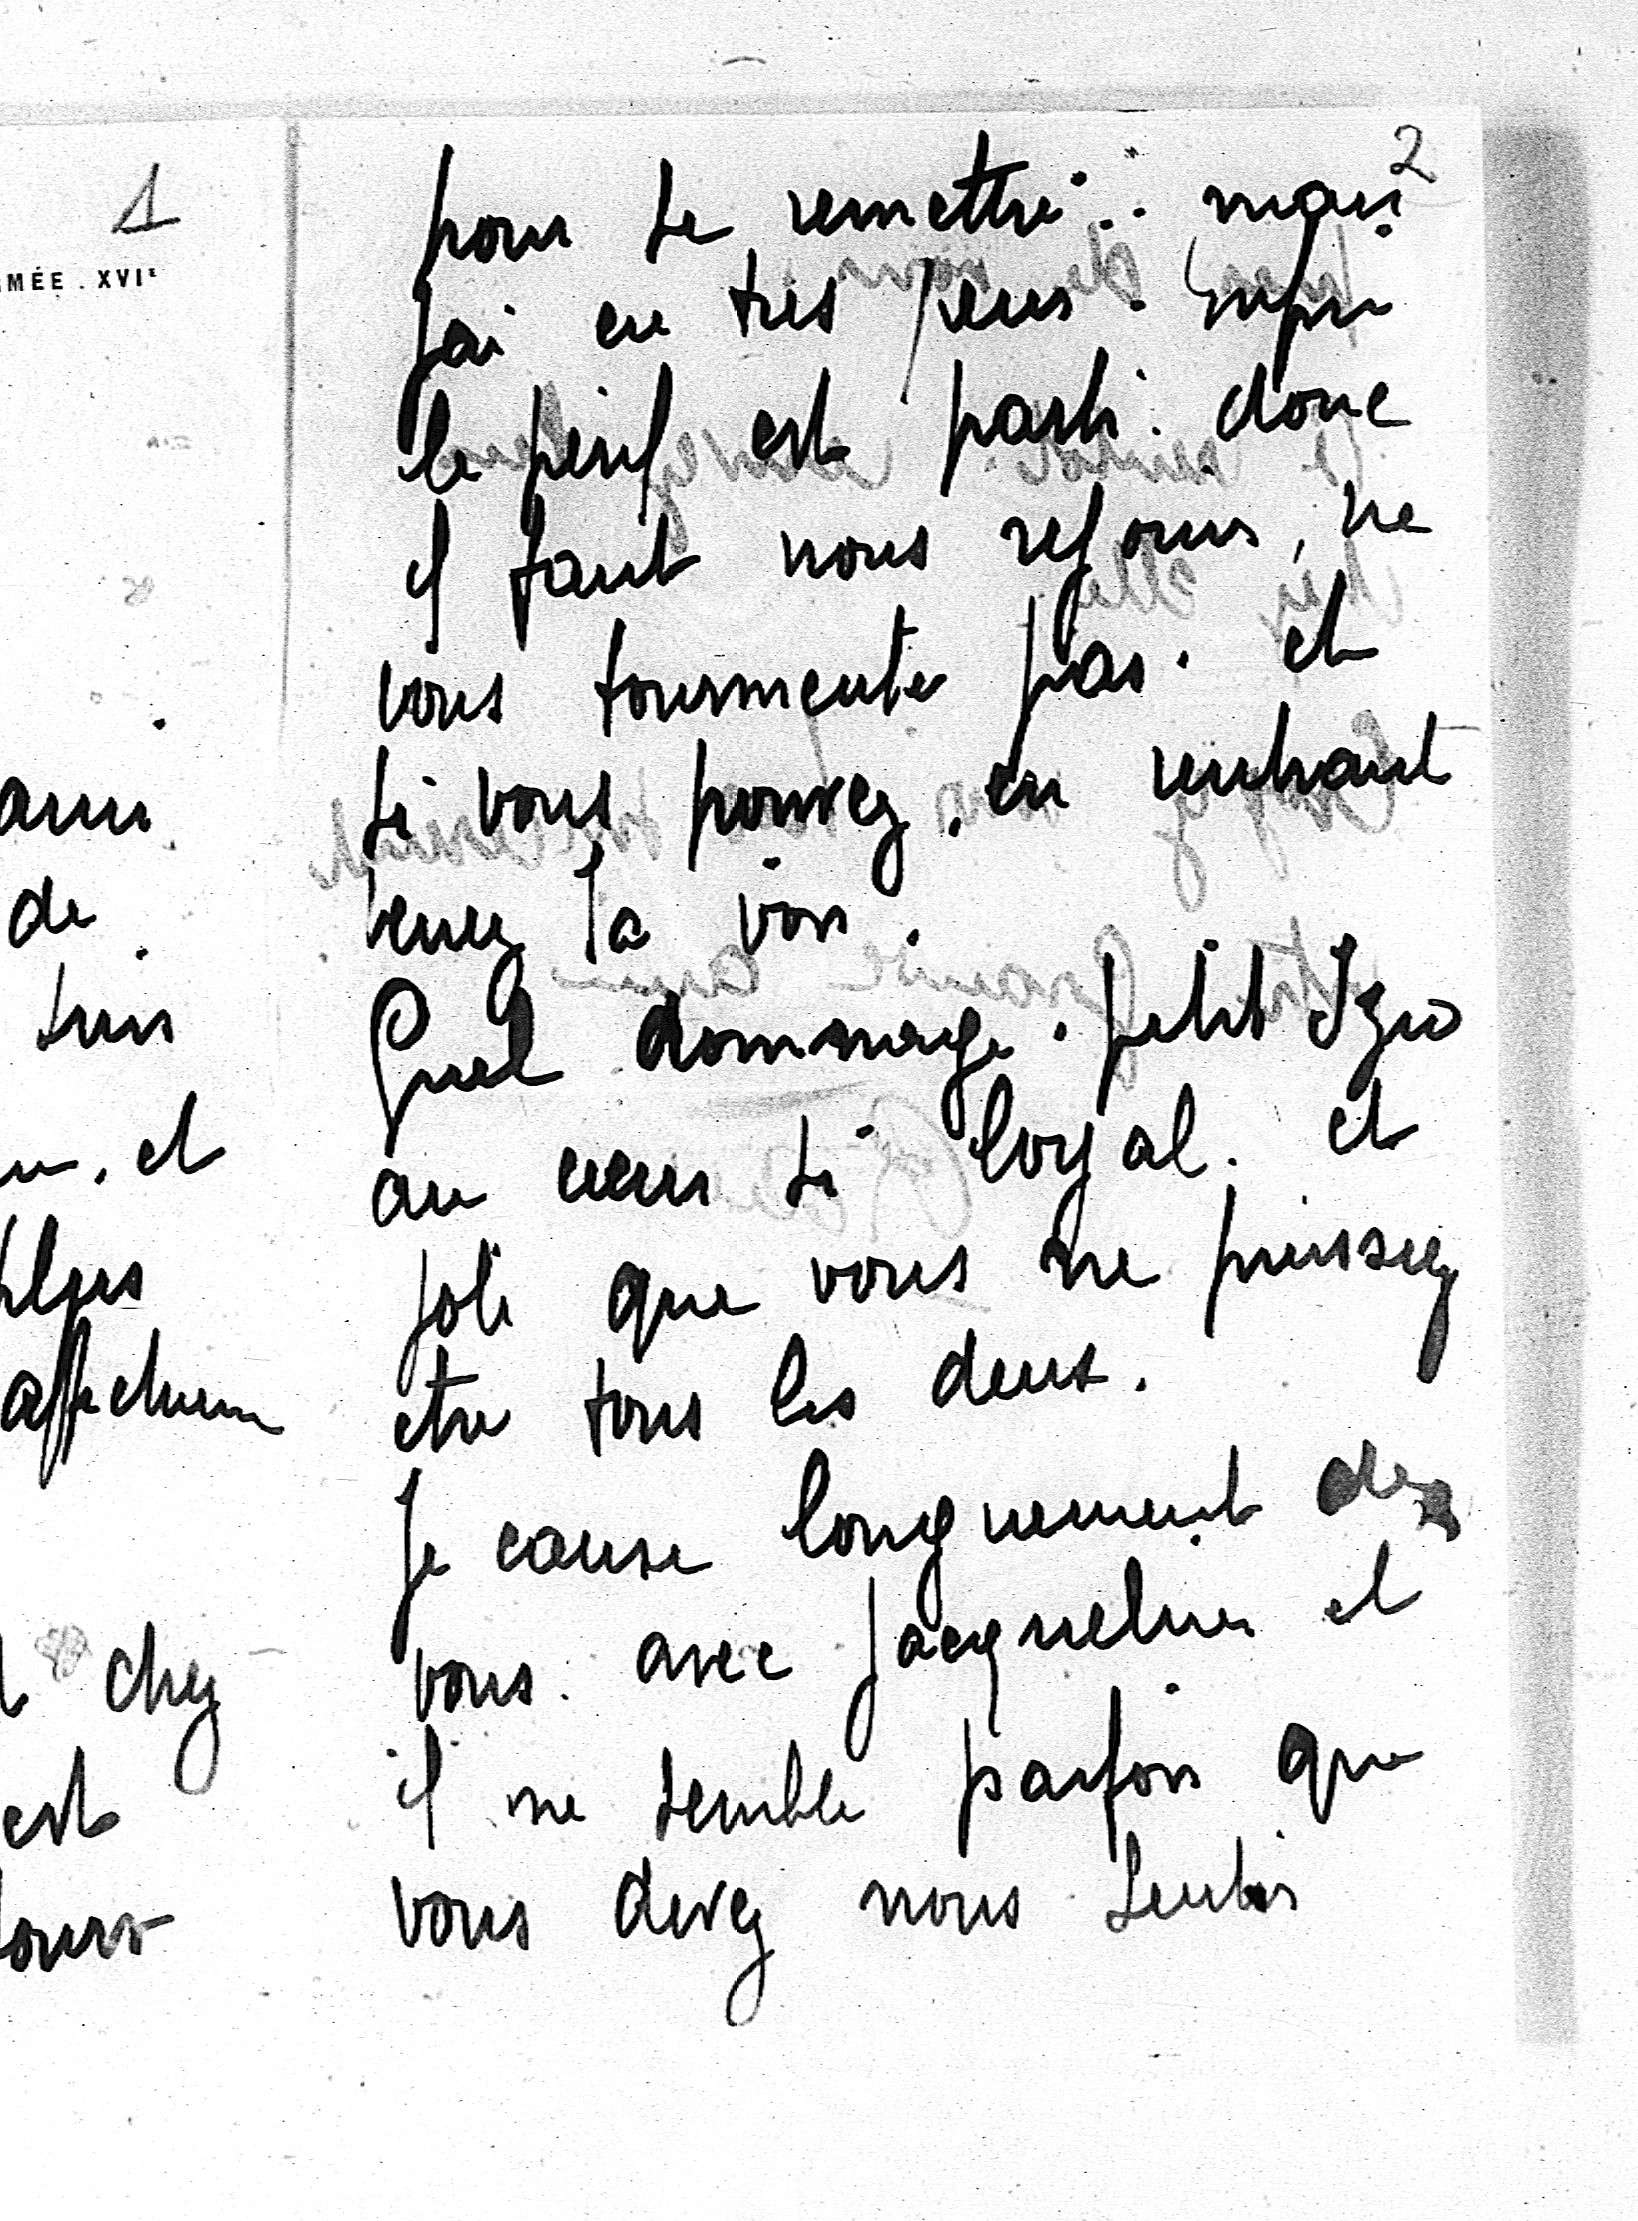 1
MÉE . XVIE
de
et
chez
est
2
pour se remettre.. mais
j'ai eu très peur. Enfin
le péril est parti. donc
il faut nous réjouir, ne
vous tourmenter pas. et
si vous pouvez. en rentrant
venez la voir.
Quel dommage. petit Izio
au cœur si loyal. et
joli que vous ne puissiez
etre tous les deux.
Je cause longuement de
vous. avec Jacqueline et
il me semble parfois que
vous devez nous sentir